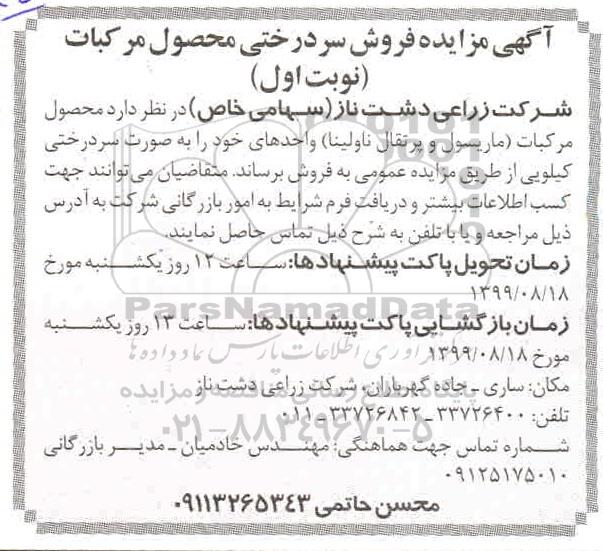 آگهی مزایده فروش سردرختی محصول مرکبات
(نوبت اول)
شرکت زراعی دشت ناز (سهامی خاص) در نظر دارد محصول
مرکبات (ماریسول و پرتقال ناولینا) واحدهای خود را به صورت سردرختی
کیلویی از طریق مزایده عمومی به فروش برساند. متقاضیان می‌توانند جهت
کسب اطلاعات بیشتر و دریافت فرم شرایط به امور بازرگانی شرکت به آدرس
ذیل مراجعه و یا با تلفن به شرح ذیل تماس حاصل نمایند.
زمان تحویل پاکت پیشنهادها: ساعت ۱۲ روز یکشنبه مورخ
۱۳۹۹/۰۸/۱۸
ParsNamadData
زمان بازگشایی پاکت پیشنهادها: ساعت ۱۳ روز یکشنبه
مورخ ۱۳۹۹/۰۸/۱۸
مکان: ساری ـ جاده گهرباران، شرکت زراعی دشت ناز
تلفن: ۳۳۷۲۶۴۰۰ ـ ۳۳۷۲۶۸۴۲-۰۱۱
۰۲۱-۸۸۳۴۹۶۷۰-۵
شماره تماس جهت هماهنگی: مهندس خادمیان ـ مدیر بازرگانی
۰۹۱۲۵۱۷۵۰۱۰
محسن حاتمی ۰۹۱۱۳۲۶۵۳۴۳